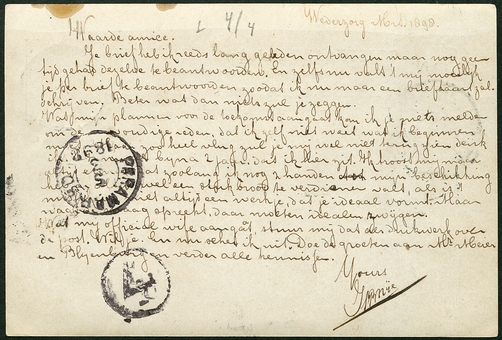 Wederzorg Mei. 1898.
4/4
Waarde amice.
Je brief heb ik reeds lang geleden ontvangen maar nog geen
tijd gehad dezelve te beantwoorden. En zelfs nu valt 't mij moeilijk
je per brief te beantwoorden zoodat ik nu maar een briefkaart zal
schrijven. Beter wat dan niets zul je zeggen.
Wat mijne plannen voor de toekomst aangaat kan ik je niets melden
om de eenvoudige reden, dat ik zelf niet weet wat ik beginnen
zal. zoo heel vlug zul je mij wel niet terug zien denk
ik. bijna 2 jaar dat ik hier zit. Ik troost mij maar
dat zoolang ik nog 2 handen tot mijne beschikking
wel een stuk brood te verdienen valt, al is 't
niet altijd een werkje, dat je ideaal vormt. Maar
waar maag spreekt, daar moeten idealen zwijgen.
Wat mij official wife aangaat, stuur mij dat als drukwerk over
de post. Wil je, en nu schei ik uit. Doe de groeten aan Mr. Meier
en verder alle kennissen.
Yours
PARAMARIBO
1898